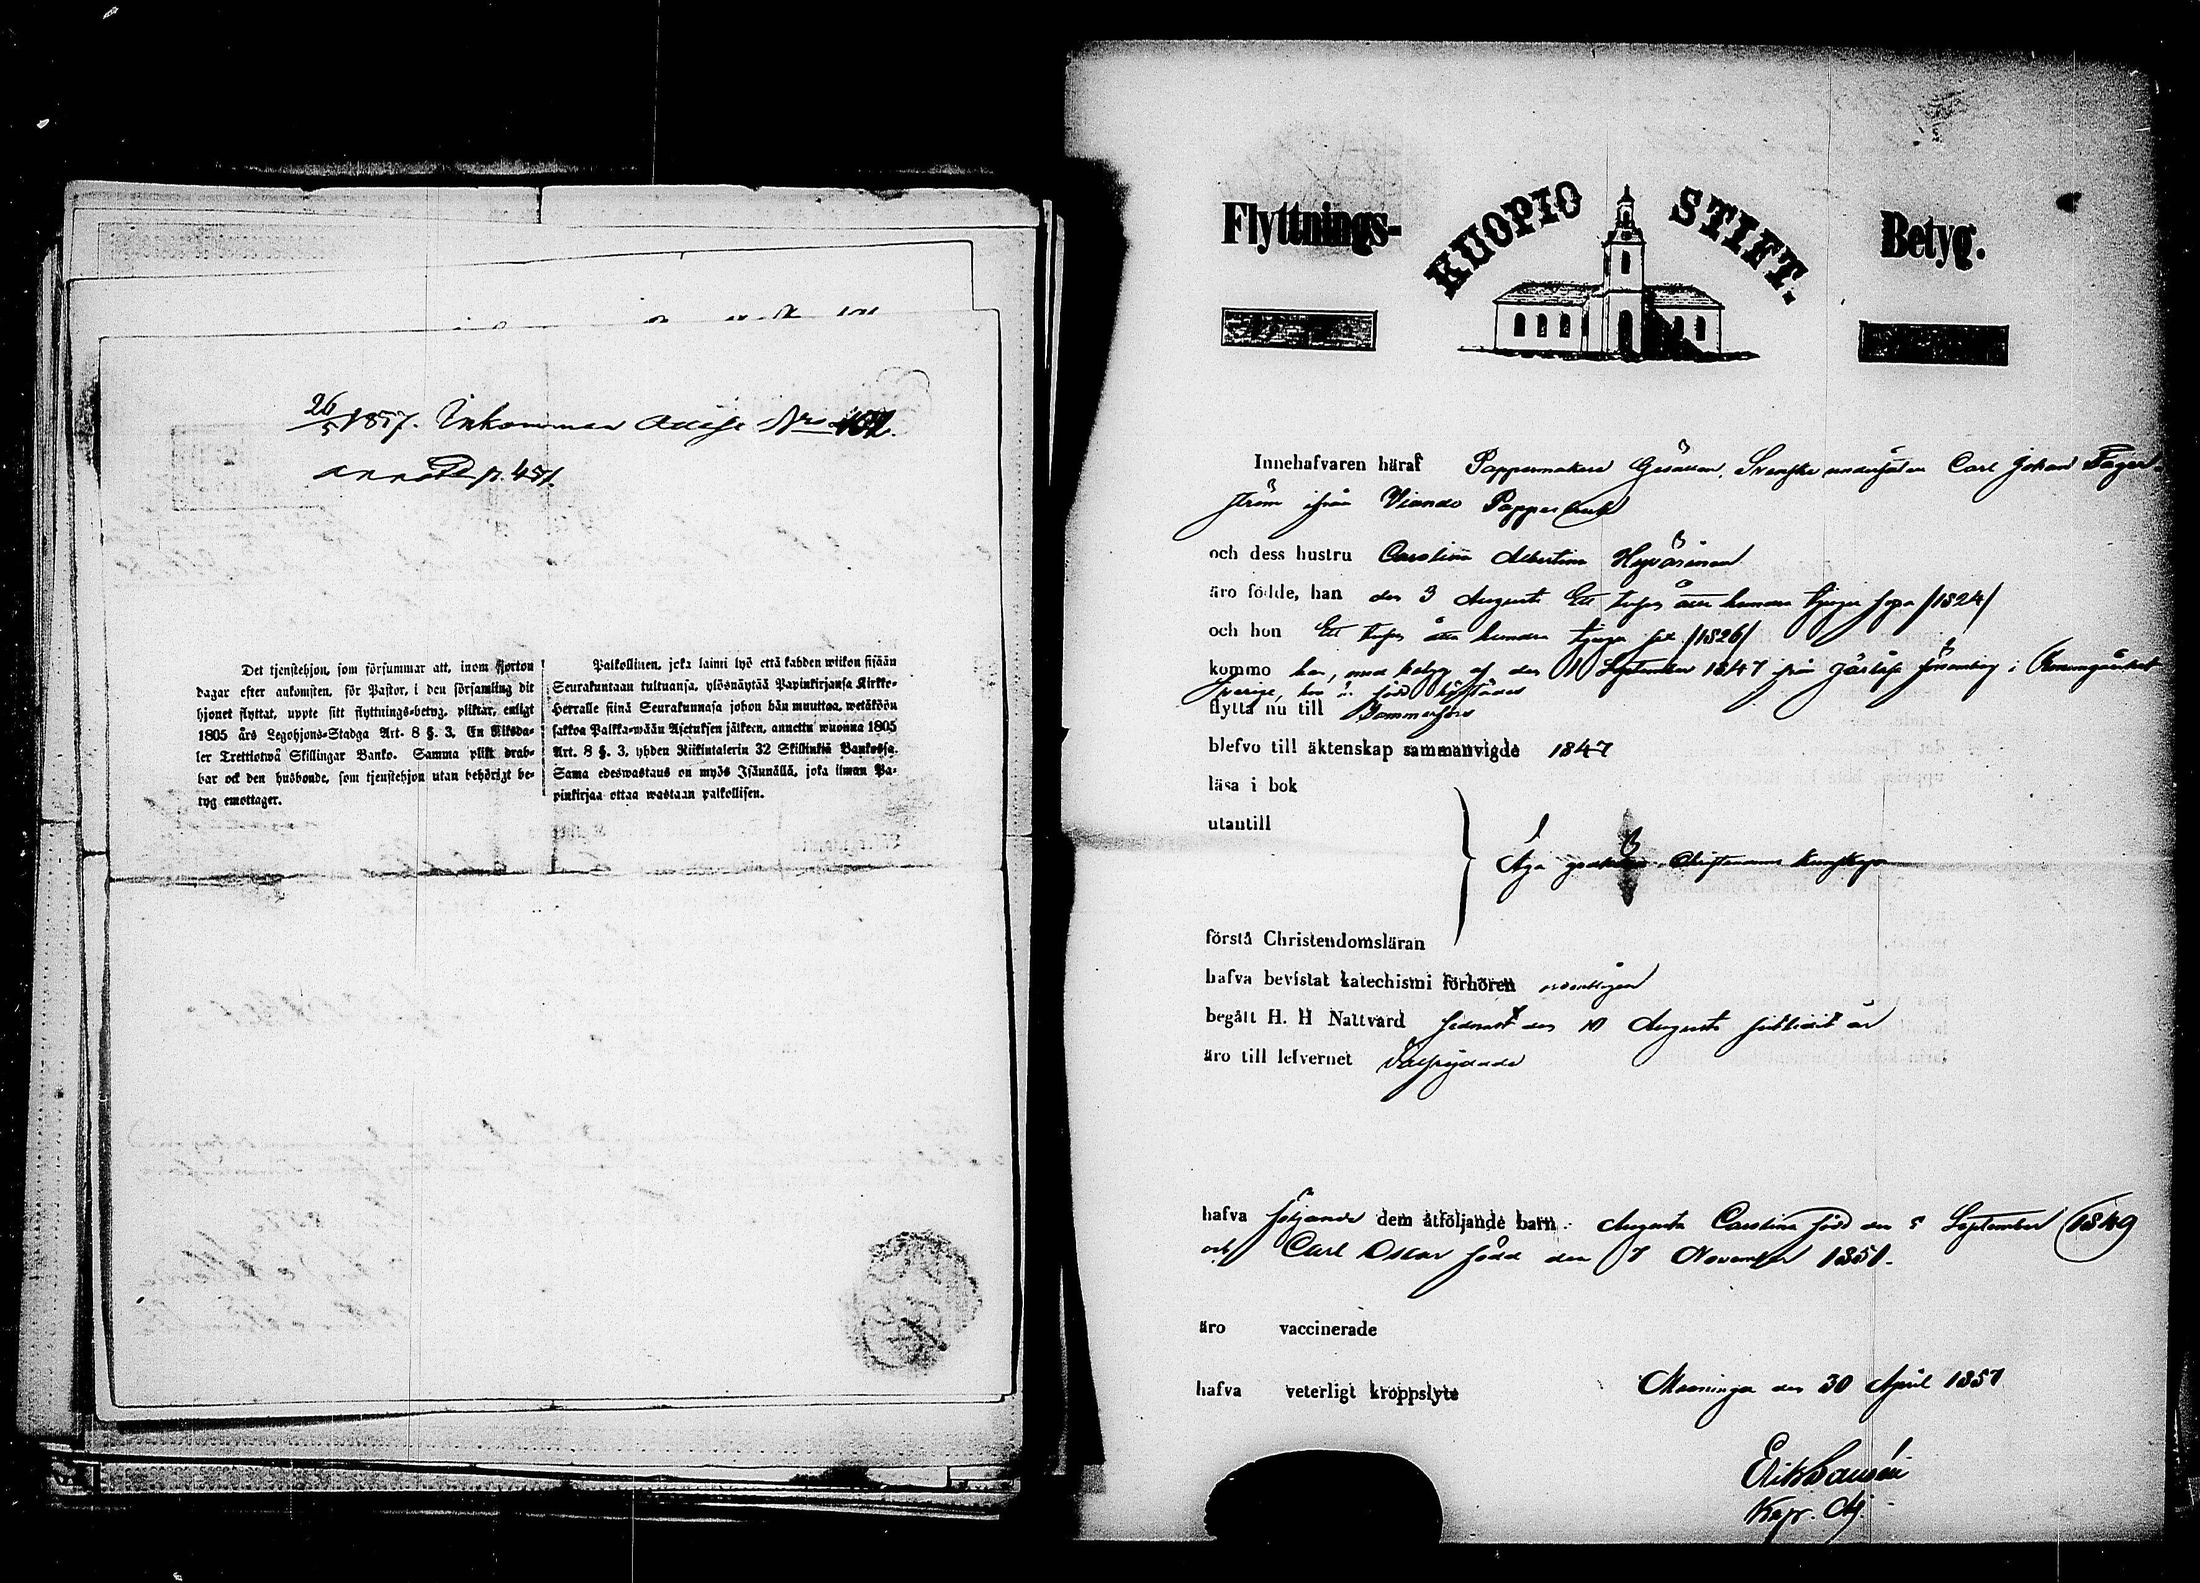 26/5 1857. Inkommen attest Nro 102.
annott. p. 451.
Det tjenstehjon, som försummar att, inom fjorton
dagar efter ankomsten, för Pastor, i den församling dit
hjonet flyttat, uppte sitt flyttnings-betyg, pliktar, enligt
1805 års Legohjons-Stadga Art. 8 §. 3, En Riksda-
ler Trettiotwå Skillingar Banko. Samma plikt drab-
bar ock den husbonde, som tjenstehjon utan behörigt be-
tyg emottager.
Palkollinen, joka laimi lyö että kahden wiikon sisään
Seurakuntaan tultuansa, ylösnäytää Papinkirjansa Kirkko-
Herralle siinä Seurakunnasa johon hän muuttaa, wetäköön
sakkoa Palkka-wään Asetuksen jälkeen, annettu wuonna 1805
Art. 8 §. 3, yhden Riikintalerin 32 Skillinkiä Bankossa.
Sama edeswastaus on myös Isäunällä, joka ilman Pa-
pinkirjaa ottaa wastaan palkollisen.
Flyttnings- KUOPIO STIFT. Betyg.
Innehafvaren häraf Pappermakare Gesällen, Svenske undersåten Carl Johan Fager-
ström ifrån Viando Pappersbruk
och dess hustru Carolina Albertina Hyvärinen
äro födde, han den 3 Augusti Ett tusen åtta hundra tjugu fyra /1824/
och hon Ett tusen åtta hundra tjugu sex /1826/
kommo han, med betyg af den 11 September 1847 från Församling i
Sverige, hon är född härstädes
flytta nu till Tammerfors
blefvo till äktenskap sammanvigde 1847
läsa i bok
utantill
Äga Christendoms kunskaper
förstå Christendomsläran
hafva bevistat katechismi förhören ordentligen
begått H. H Nattvard sednast den 10 Augusti sistlidit år
äro till lefvernet Välfrejdade
hafva följande dem åtföljande barn: Augusta Carolina född den 5 September 1849
och Carl Oscar född den 7 November 1851.
äro vaccinerade
hafva veterligt kroppslyte
Maaninga den 30 April 1857
Erik
Kapr. Adj.